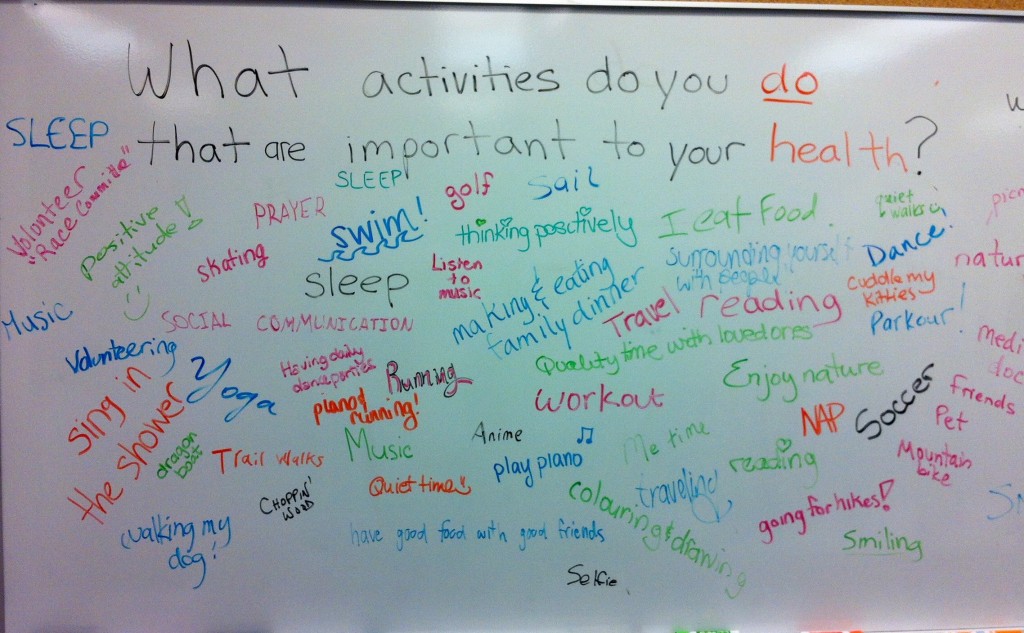 What activities do you do
that are important to your health?
SLEEP
Volunteer
"Race Committee"
Positive
attitude!
PRAYER
SLEEP
swim!
golf
sail
thinking positively
I eat Food.
quiet
walks
Dance!
skating
sleep
Listen
to
music
making & eating
family dinner
surrounding yourself
with people
Cuddle my
kitties
natur
Music
SOCIAL COMMUNICATION
Travel
reading
Parkour!
Volunteering
Having daily
dance parties
Running
Quality time with loved ones
Enjoy nature
Yoga
sing in
the shower
piano &
running!
workout
NAP
Soccer
friends
Pet
dragon
boat
Trail Walks
Music
Anime
play piano
Me time
reading
Mountain
bike
CHOPPIN'
WOOD
Quiet time
colouring & drawing
traveling
going for hikes!
walking my
dog!
have good food with good friends
Smiling
Selfie